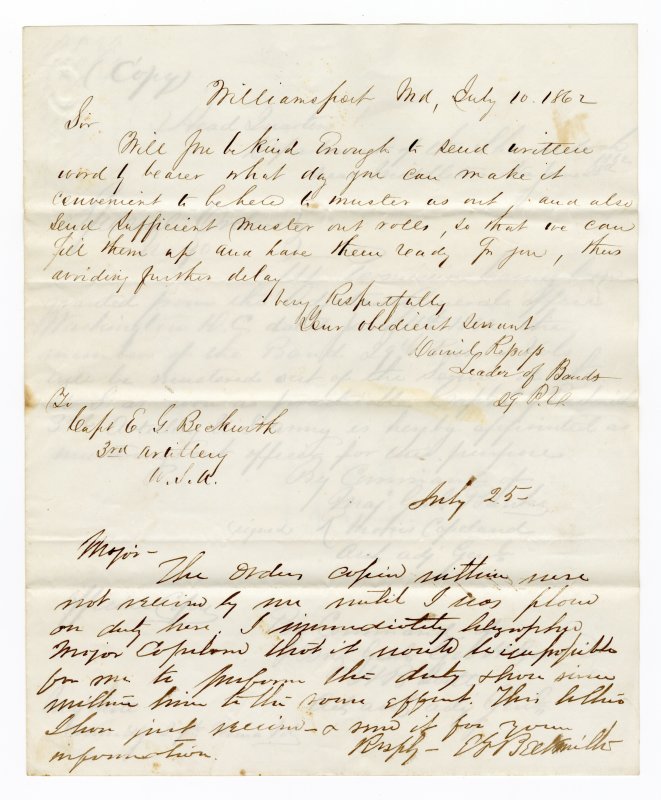 Williamsport Md, July 10. 1862
Sir
Will you be kind Enough to send written
word by bearer what day you can make it
convenient to be here to muster us out, and also
send sufficient muster out rolls, so that we can
fill them up and have them ready for you, thus
avoiding further delay
Very Respectfully
Your obedient servant
Daniel
Leader of Bands
29 P.V.
To
Capt E G Beckwith
3rd Artillery
U.S.A.
July 25-
Major-
The orders copied within were
not received by me until I was placed
on duty here. I immediately telegraphed
Major Copeland that it would be impossible
for me to perform the duty & have since
written him to the same effect. This letter
I have just received & send it for your
information. Respy- E G Beckwith
(Copy)